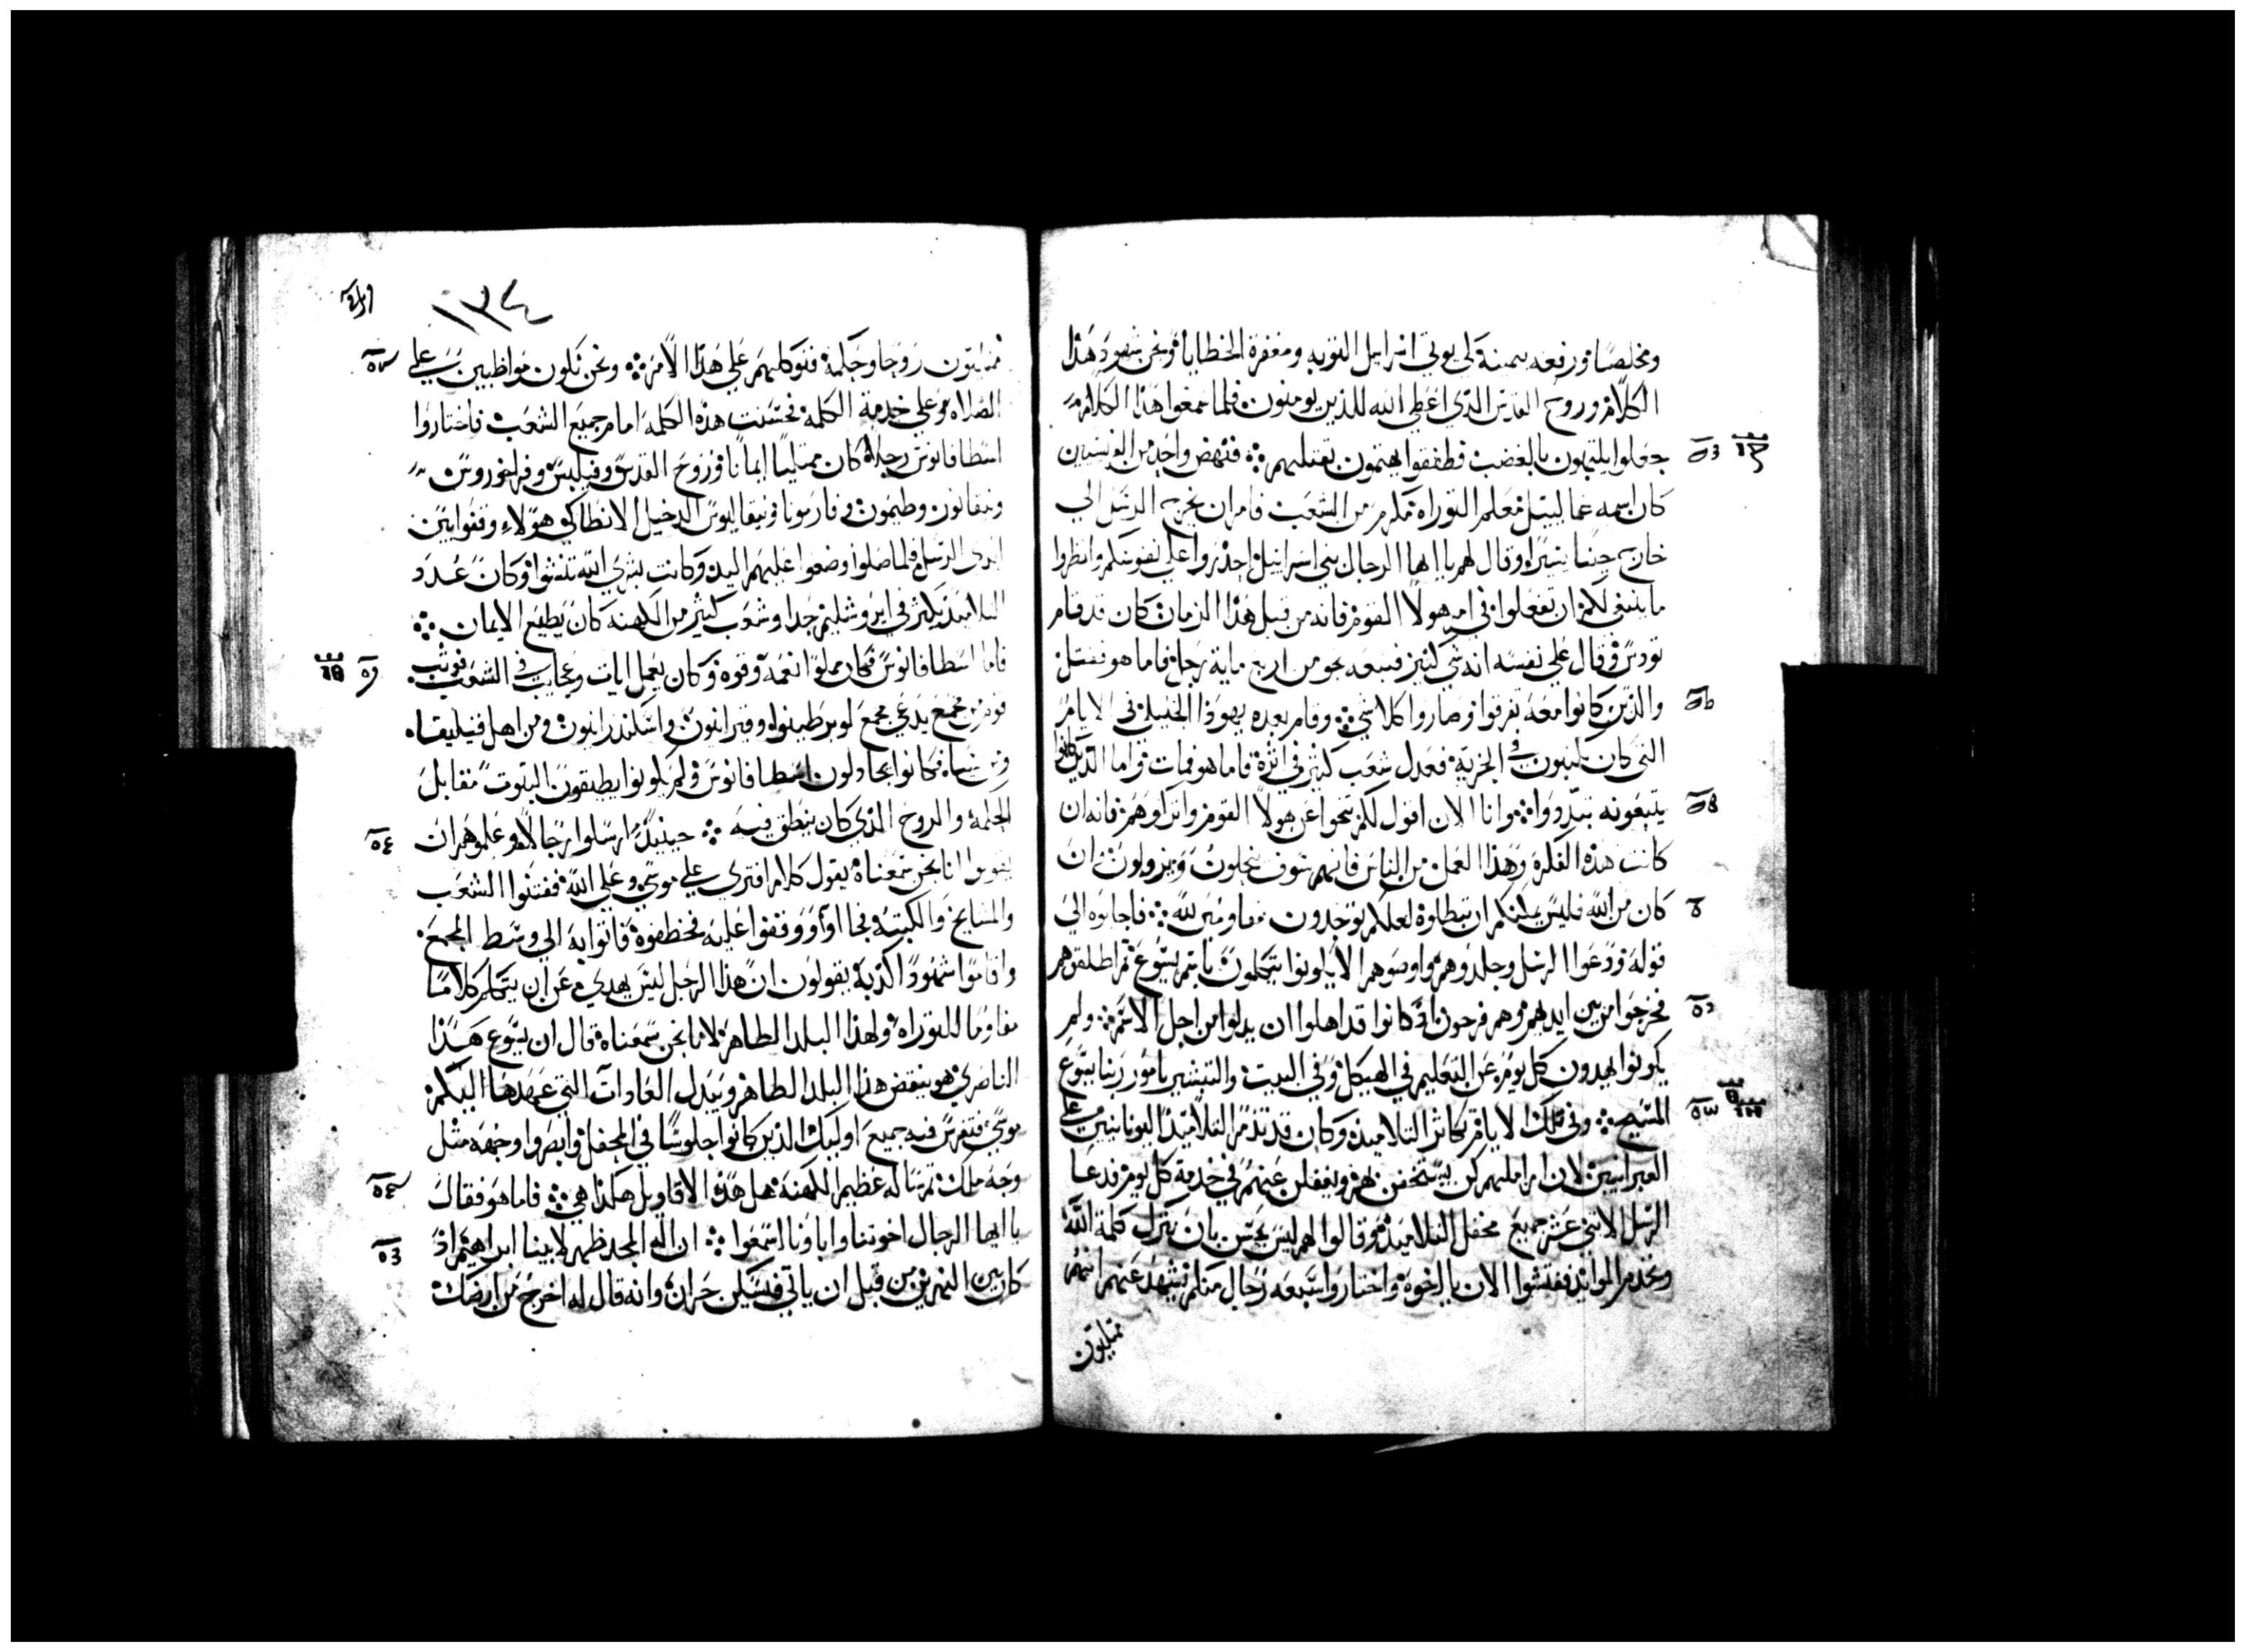 ومخلصا ورفعه بيمينه لكي يوتي اسرايل التوبه ومغفرة الخطايا ونحن شهود هذا
الكلام وروح القدس الذي اعطي الله للذين يومنون فلما سمعوا هذا الكلام
جعلوا يلتهبون بالغضب فطفقوا يهتمون بقتلهم فنهض واحد من الفريسيين
كان اسمه غماليييل معلم التوراه مكرم من الشعب فامر ان يخرج الرسل الي
خارج حينا يسيرا وقال لهم يا ايها الرجال بني اسراييل احذروا علي نفوسكم وانظروا
ما ينبغي لكم ان تفعلوا في امر هولا القوم فانه من قبل هذا الزمان كان قد قام
تودس وقال علي نفسه انه شي كبير فتبعه نحو من اربع مايه رجل فاما هو فقتل
والذين كانوا معه تفرقوا وصاروا كلا شي وقام بعده يهوذا الجليلي في الايام
التي كان يكتبون في الجزية فعدل شعب كثير في اثره فاما هو فمات واما الذين كانوا
يتبعونه تبددوا وانا الان اقول لكم تنحوا عن هولا القوم واتركوهم فانه ان
كانت هذه الفكرة وهذا العمل من الناس فانهم سوف ينحلون ويزولون وان
كان من الله فليس يمكنكم ان تبطلوه لعلكم توجدون مقاومين لله فاجابوه الي
قوله ودعوا الرسل وجلدوهم واوصوهم الا يكونوا يتكلمون باسم يسوع ثم اطلقوهم
فخرجوا من بين ايديهم وهم فرحون اذ كانوا قد اهلوا ان يذلوا من اجل الاسم ولم
يكونوا يهدون كل يوم عن التعليم في الهيكل وفي البيت والتبشير بامور ربنا يسوع
المسيح وفي تلك الايام تكاثر التلاميذ وكان قد تذمر التلاميذ اليونانيين علي
العبرانيين لان اراملهم كن يستخفن بهن ويغفلن عنهم في خدمة كل يوم فدعا
الرسل الاثني عشر جميع محفل التلاميذ وقالوا لهم ليس يحسن بان نترك كلمة الله
ونخدم الموايد ففتشوا الان يا اخوة واختاروا سبعه رجال منكم يشهد عنهم انهم
ممتليون
١٣٤
ممتليون روحا وحكمة فنوكلهم علي هذا الامر ونحن نكون مواظبين علي
الصلاه وعلي خدمة الكلمه فحسنت هذه الكلمة امام جميع الشعب فاختاروا
اسطافانوس رجلا كان ممتليا ايمانا وروح القدس وفيلبس وفراخوروس
ونيقانون وطيمون وفارمونا ونيقالاوس الدخيل الانطاكي هولاء وقفوا بين
ايدي الرسل فلما صلوا وضعوا عليهم اليد وكانت بشري الله تنشوا وكان عدد
التلاميذ يكثر في ايروشليم جدا وشعب كثير من الكهنه كان يطيع الايمان
فاما اسطافانوس فكان مملوا نعمه وقوه وكان يعمل ايات وعجايب في الشعب فوثب
قوم من مجمع يدعي مجمع لوبرطينوا وقيرانيون واسكندرانيون ومن اهل قيليقيا
ومن اسيا فكانوا يجادلون اسطافانوس ولم يكونوا يطيقون الثبوت مقابل
الحكمة والروح الذي كان ينطق فيه حينيذ ارسلوا رجالا وعلموهم ان
يقولوا انا نحن سمعناه يقول كلام افتري علي موسي وعلي الله ففتنوا الشعب
والمشايخ والكتبة فجااوا ووقفوا عليه فخطفوه فاتوا به الي وسط المجمع
واقاموا شهودا كذبة يقولون ان هذا الرجل ليس يهدي عن ان يتكلم كلاما
مقاوما للتوراه ولهذا البلد الطاهر لانا نحن سمعناه قال ان يسوع هذا
الناصري هو ينقض هذا البلد الطاهر ويبدل العادات التي عهدها اليكم
موسي فتفرس فيه جميع اوليك الذين كانوا جلوسا في المحفل وابصروا وجهه مثل
وجه ملاك ثم ساله عظيم الكهنة هل هذه الاقاويل هكذا هي فاما هو فقال
يا ايها الرجال اخوتنا واباونا اسمعوا ان اله المجد ظهر لابينا ابراهيم اذ
كان بين النهرين من قبل ان ياتي فيسكن حران وانه قال له اخرج من ارضك